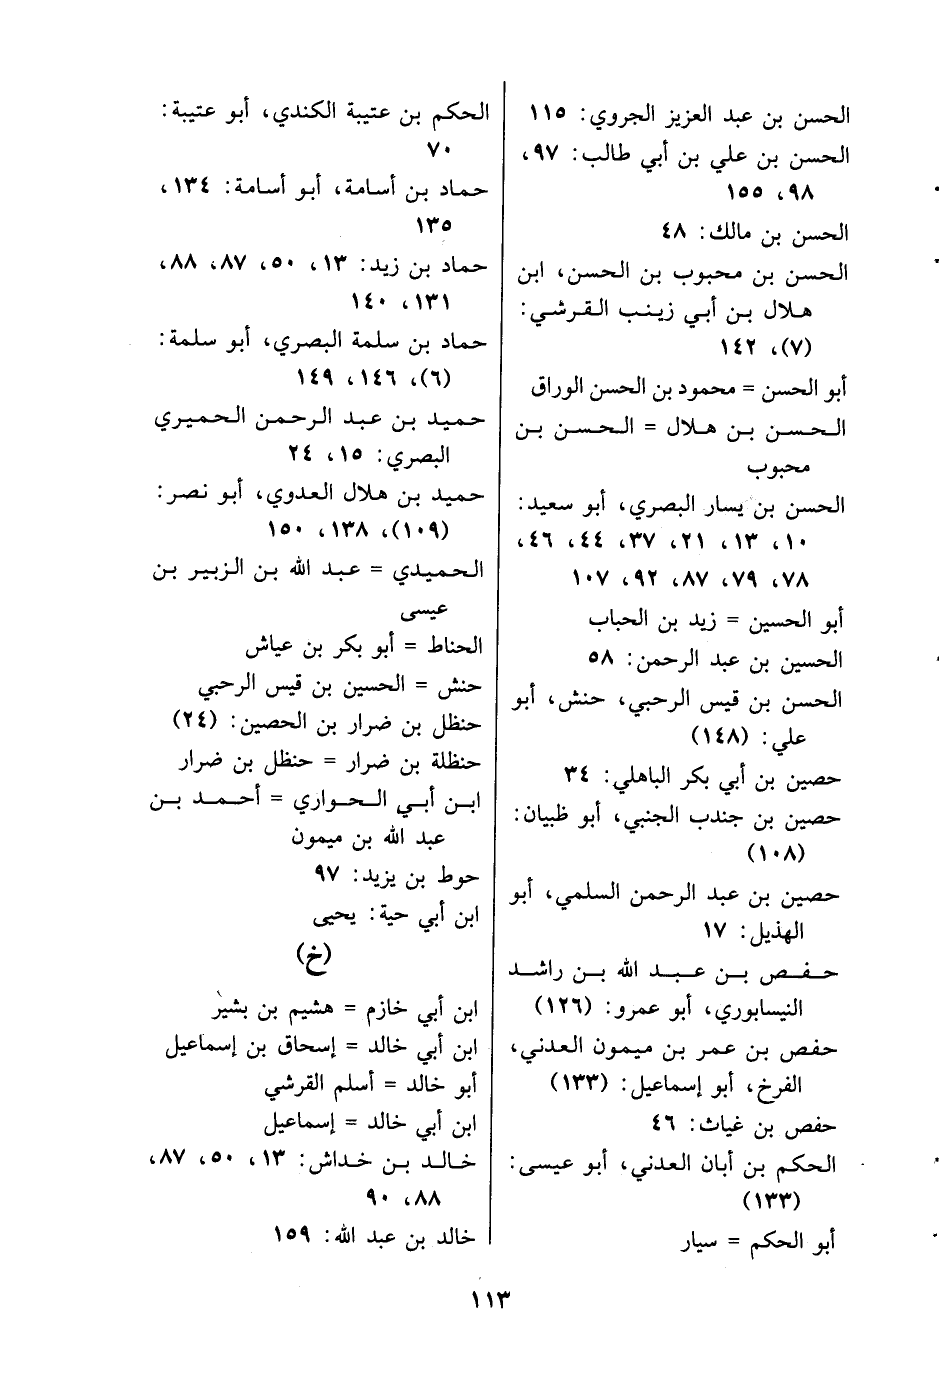 الحسن بن عبد العزيز الجروي: ١١٥
الحسن بن علي بن أبي طالب: ٩٧،
٩٨، ١٥٥
الحسن بن مالك: ٤٨
الحسن بن محبوب بن الحسن، ابن
هلال بن أبي زينب القرشي:
(٧)، ١٤٢
أبو الحسن = محمود بن الحسن الوراق
الحسن بن هلال = الحسن بن
محبوب
الحسن بن يسار البصري، أبو سعيد:
١٠، ١٣، ٢١، ٣٧، ٤٤، ٤٦،
٧٨، ٧٩، ٨٧، ٩٢، ١٠٧
أبو الحسين = زيد بن الحباب
الحسين بن عبد الرحمن: ٥٨
الحسن بن قيس الرحبي، حنش، أبو
علي: (١٤٨)
حصين بن أبي بكر الباهلي: ٣٤
حصين بن جندب الجنبي، أبو ظبيان:
(١٠٨)
حصين بن عبد الرحمن السلمي، أبو
الهذيل: ١٧
حفص بن عبد الله بن راشد
النيسابوري، أبو عمرو: (١٢٦)
حفص بن عمر بن ميمون العدني،
الفرخ، أبو إسماعيل: (١٣٣)
حفص بن غياث: ٤٦
الحكم بن أبان العدني، أبو عيسى:
(١٣٣)
أبو الحكم = سيار
الحكم بن عتيبة الكندي، أبو عتيبة:
٧٠
حماد بن أسامة، أبو أسامة: ١٣٤،
١٣٥
حماد بن زيد: ١٣، ٥٠، ٨٧، ٨٨،
١٣١، ١٤٠
حماد بن سلمة البصري، أبو سلمة:
(٦)، ١٤٦، ١٤٩
حميد بن عبد الرحمن الحميري
البصري: ١٥، ٢٤
حميد بن هلال العدوي، أبو نصر:
(١٠٩)، ١٣٨، ١٥٠
الحميدي = عبد الله بن الزبير بن
عيسى
الحناط = أبو بكر بن عياش
حنش = الحسين بن قيس الرحبي
حنظل بن ضرار بن الحصين: (٢٤)
حنظلة بن ضرار = حنظل بن ضرار
ابن أبي الحواري = أحمد بن
عبد الله بن ميمون
حوط بن يزيد: ٩٧
ابن أبي حية: يحيى
(خ)
ابن أبي خازم = هشيم بن بشير
ابن أبي خالد = إسحاق بن إسماعيل
أبو خالد = أسلم القرشي
ابن أبي خالد = إسماعيل
خالد بن خداش: ١٣، ٥٠، ٨٧،
٨٨، ٩٠
خالد بن عبد الله: ١٥٩
١١٣